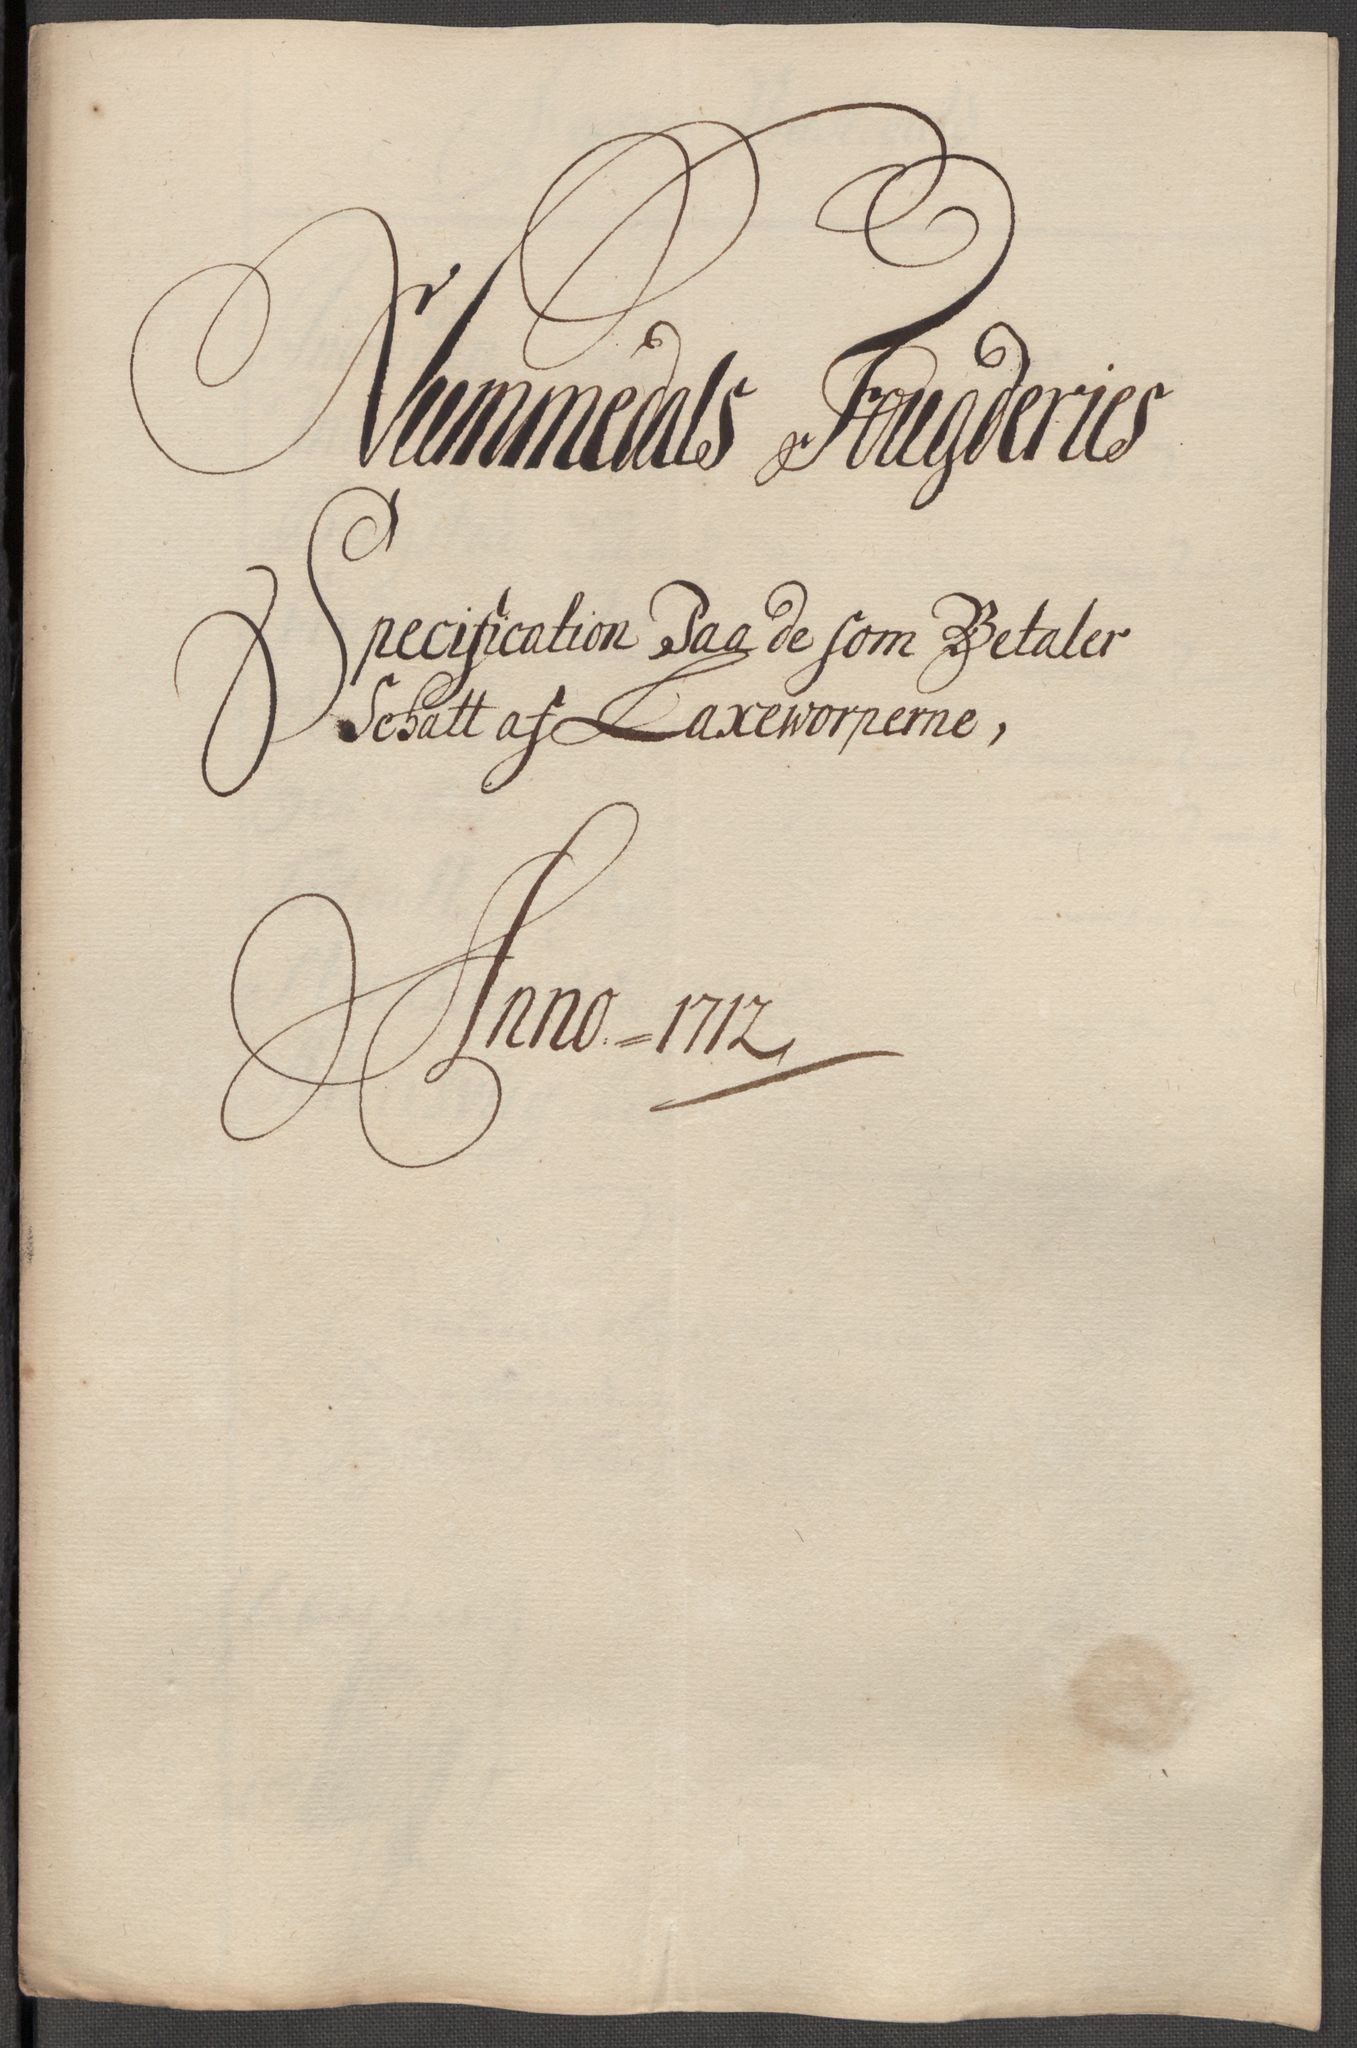 Nummedals Fougderies
Specification Paa de som Betaler
Schatt af Laxeworperne,
Anno = 1712,